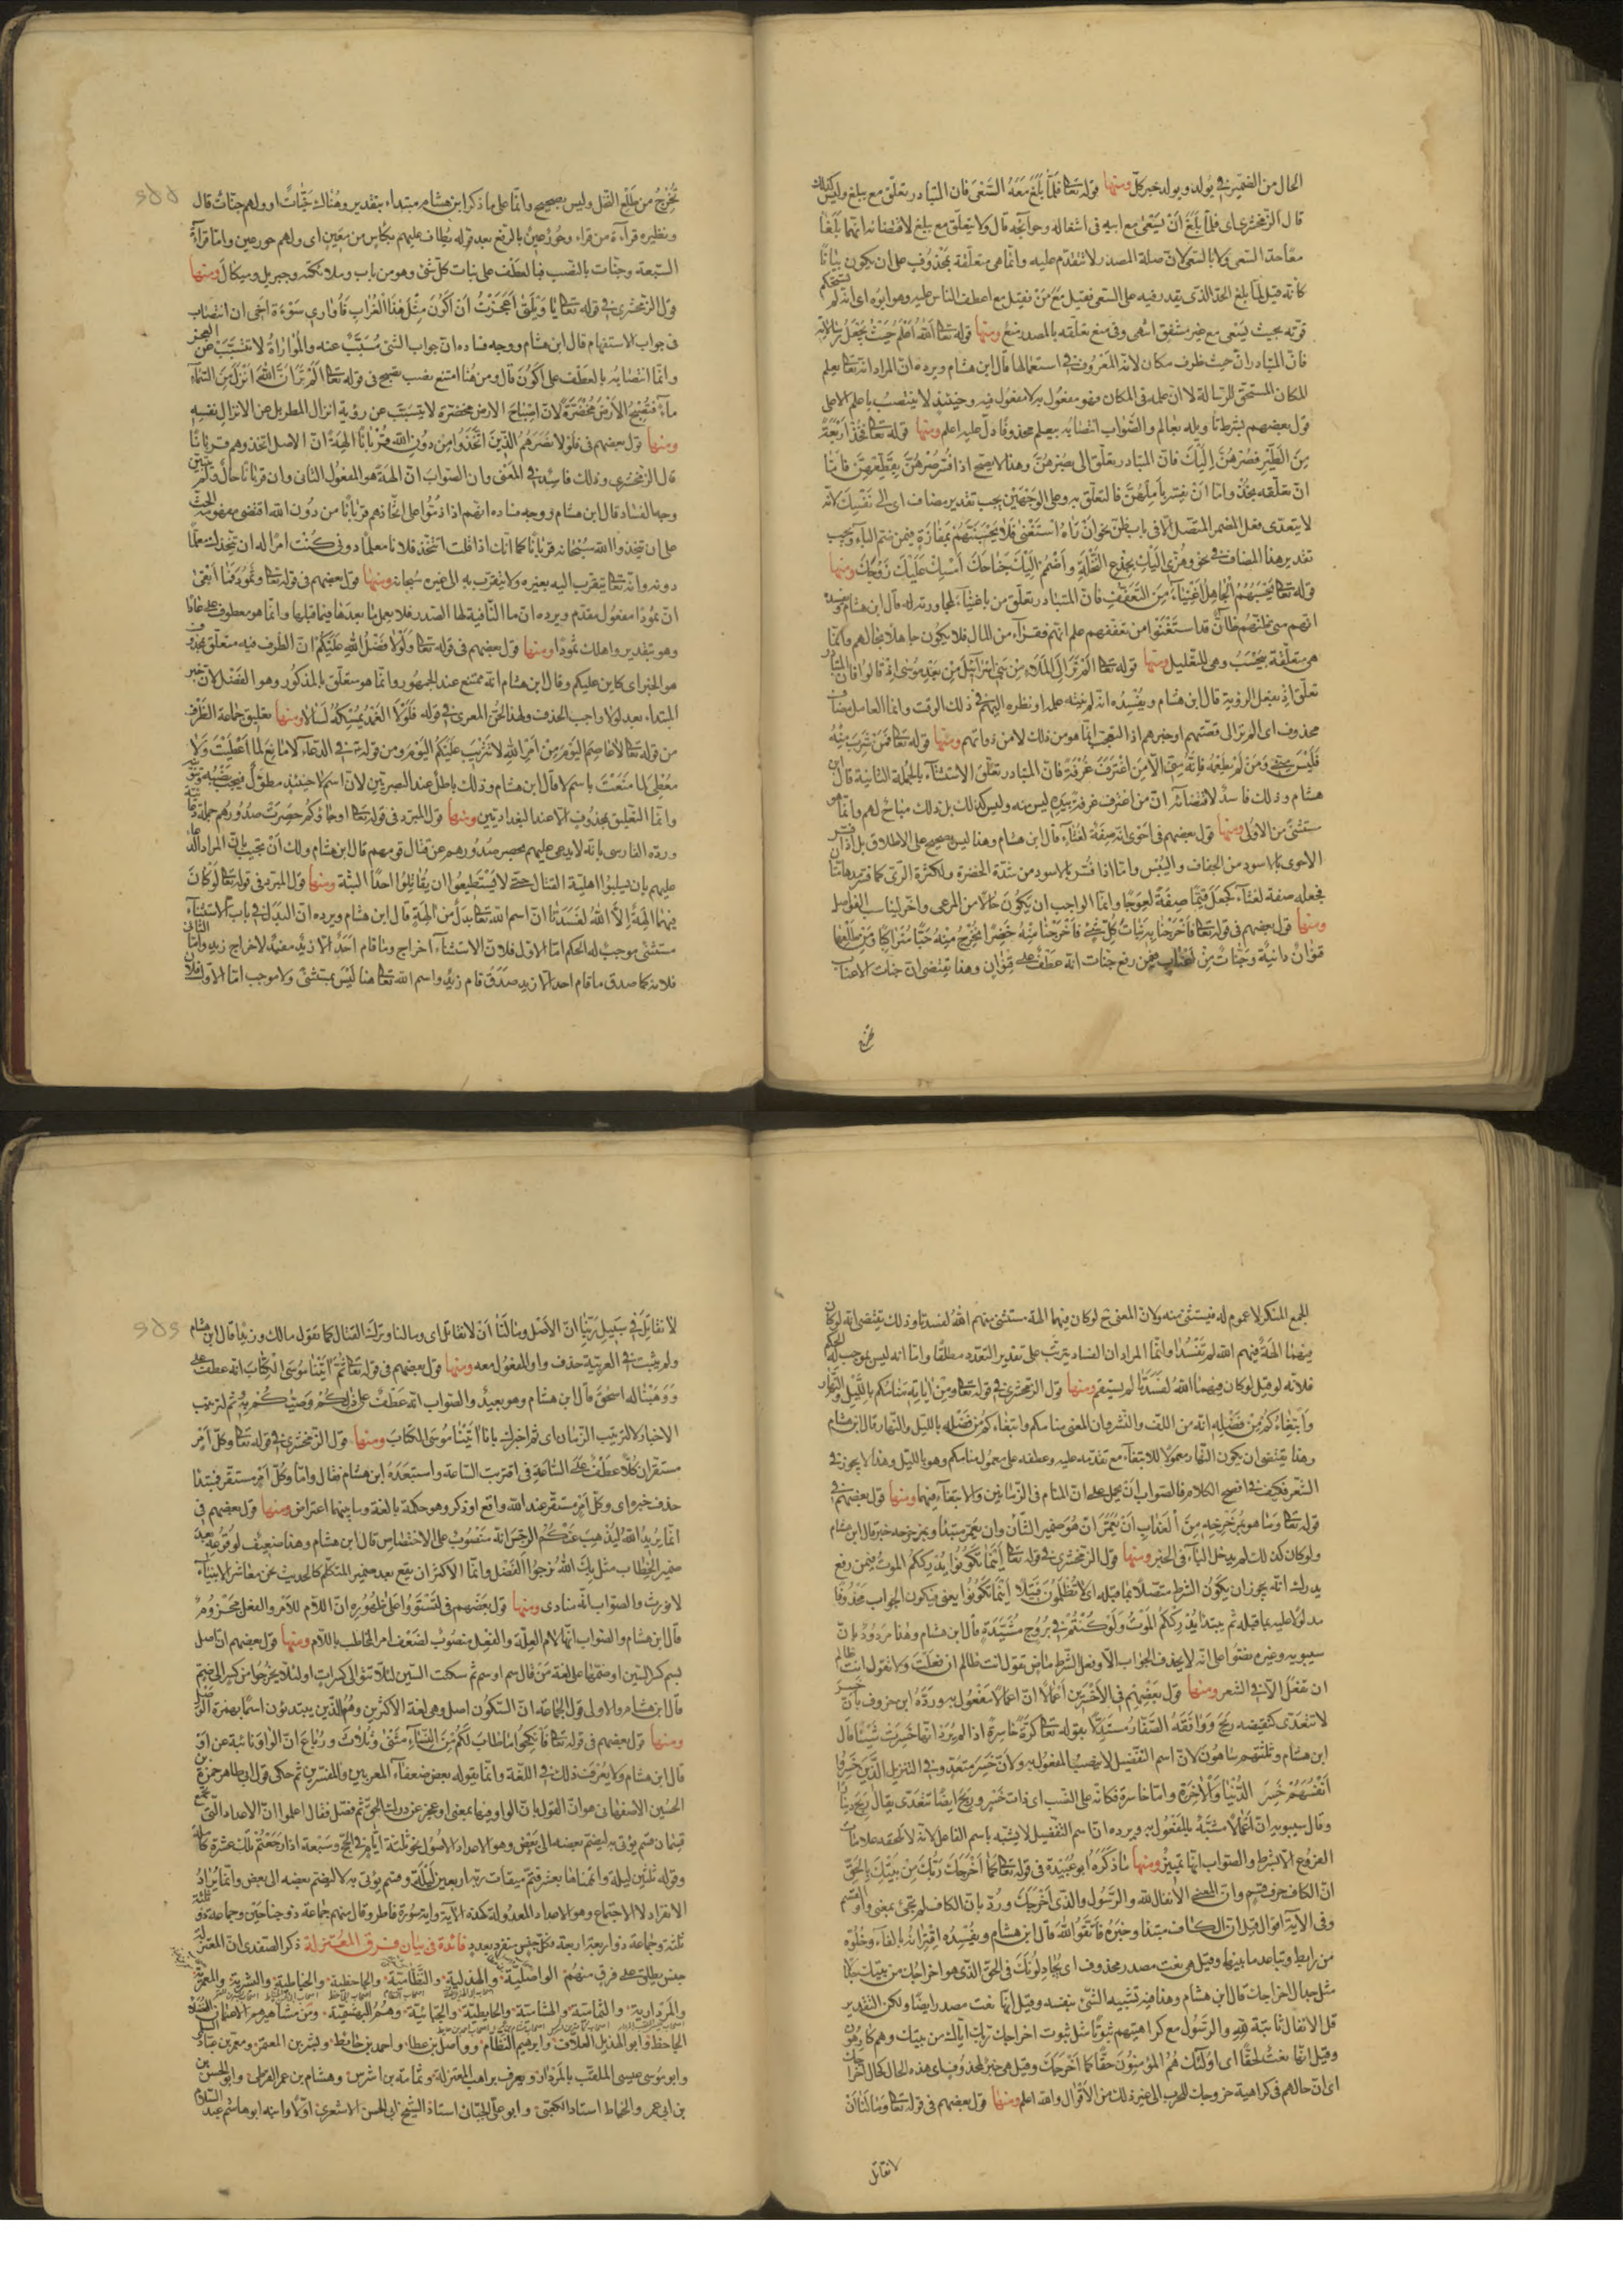 الحال من الضمير في يولد ويولد خبر كل ومنها قوله تعالى فلما بلغ معه السعى فان المتبادر تعلق مع ببلغ وليس كذلك
قال الزمخشرى اى فلما بلغ ان يسعى مع ابيه فى اشغاله وحوائجه قال ولا يتعلق مع ببلغ لاقتضائه انهما بلغا
معا حد السعى ولا بالسعى لان صلة المصدر لا تتقدم عليه وانما هى متعلقة بمحذوف على ان يكون بيانا
كانه قيل لما بلغ الحد الذى يقدر فيه على السعى فقيل مع من فقيل مع اعطف الناس عليه وهو ابوه اى انه لم يستحكم
قوته بحيث يسعى مع غير مشفق انتهى وفى منع تعلقه بالمصدر منع ومنها قوله تعالى الله اعلم حيث يجعل رسالاته
فان المتبادر ان حيث ظرف مكان لانه المعروف فى استعمالها قال ابن هشام ويرده ان المراد انه تعالى يعلم
المكان المستحق للرسالة لا ان علمه فى المكان فهو مفعول به لا مفعول فيه وحينئذ لا ينتصب باعلم الا على
قول بعضهم بشرط تأويله بعالم والصواب انتصابه بيعلم محذوفا دل عليه اعلم ومنها قوله تعالى فخذ اربعة
من الطير فصرهن اليك فان المتبادر تعلق الى بصرهن وهذا لا يصح اذا فسر صرهن بقطعهن فانما
ان تعلقه بخذ واما ان فسر باملهن فالتعلق به وعلى الوجهين يجب تقدير مضاف اى الى نفسك لانه
لا يتعدى فعل المضمر المتصل الا فى باب ظن نحو ان رآه استغنى فلا يحسبنهم بمفازة فيمن ضم الباء ويجب
تقدير هذا المضاف فى نحو وهزى اليك بجذع النخلة واضمم اليك جناحك امسك عليك زوجك ومنها
قوله تعالى يحسبهم الجاهل اغنياء من التعفف فان المتبادر تعلق من باغنياء لمجاورته له قال ابن هشام ويفسده
انهم متى ظنهم ظان قد استغنوا من تعففهم علم انهم فقراء من المال فلا يكون جاهلا بحالهم وانما
هى متعلقة بيحسب وهى للتعليل ومنها قوله تعالى الم تر الى الملاء من بنى اسرائيل من بعد موسى اذ قالوا فان المتبادر
تعلق اذ بفعل الرؤية قال ابن هشام ويفسده انه لم ينته علمه او نظره اليهم فى ذلك الوقت وانما العامل مضاف
محذوف اى الم تر الى قصتهم او خبرهم اذ التعجب انما هو من ذلك لا من ذواتهم ومنها قوله تعالى فمن شرب منه
فليس منى ومن لم يطعمه فانه منى الا من اغترف غرفة فان المتبادر تعلق الاستثناء بالجملة الثانية قال ابن
هشام وذلك فاسد لاقتضائه ان من اغترف غرفة بيده ليس منه وليس كذلك بل ذلك مباح لهم وانما هو
مستثنى من الاولى ومنها قول بعضهم فى احوى انه صفة لغثاء قال ابن هشام وهذا ليس بصحيح على الاطلاق بل اذا فسر
الاحوى بالاسود من الجفاف واليبس واما اذا فسر بالاسود من شدة الخضرة ولكثرة الرى كما فسر مدهامتان
فجعله صفة لغثاء كجعل قيما صفة لعوجا وانما الواجب ان يكون حالا من المرعى واخر لتناسب الفواصل
ومنها قول بعضهم فى قوله تعالى فاخرجنا به نبات كل شئ فاخرجنا منه خضرا نخرج منه حبا متراكبا ومن النخل من طلعها
قنوان دانية وجنات من اعناب فيمن رفع جنات انه عطف على قنوان وهذا يقتضى ان جنات الاعناب
تخرج
تخرج من طلع النخل وليس بصحيح وانما على ما ذكر ابن هشام مبتداء بتقدير وهناك جنات او ولهم جنات قال
ونظيره قراءة من قراء وحور عين بالرفع بعد قوله يطاف عليهم بكاس من معين اى ولهم حور عين واما قراءة
السبعة وجنات بالنصب فبالعطف على نبات كل شئ وهو من باب وملائكته وجبريل وميكال ومنها
قول الزمخشرى فى قوله تعالى يا ويلتى اعجزت ان اكون مثل هذا الغراب فاوارى سوءة اخى ان انتصاب
فى جواب الاستفهام قال ابن هشام ووجه فساده ان جواب الشئ مسبب عنه والمواراة لا تتسبب عن العجز
وانما انتصابه بالعطف على اكون قال ومن هنا امتنع نصب تصبح فى قوله تعالى الم تر ان الله انزل من السماء
ماء فتصبح الارض مخضرة لان اصباح الارض مخضرة لا يتسبب عن رؤية انزال المطر بل عن الانزال نفسه
ومنها قول بعضهم فى فلولا نصرهم الذين اتخذوا من دون الله قربانا الهة ان الاصل اتخذوهم قربانا
قال الزمخشرى وذلك فاسد فى المعنى وان الصواب ان الهة هو المفعول الثانى وان قربانا حال ولم يبين
وجه الفساد قال ابن هشام ووجه فساده انهم اذا ذموا على اتخاذهم قربانا من دون الله اقتضى مفهومه الحث
على ان يتخذوا الله سبحانه قربانا كما انك اذا قلت اتتخذ فلانا معلما دونى كنت امرا له ان يتخذك معلما
دونه والله تعالى يتقرب اليه بغيره ولا يتقرب به الى غيره سبحانه ومنها قول بعضهم فى قوله تعالى وثمود فما ابقى
ان ثمودا مفعول مقدم ويرده ان ما النافية لها الصدر فلا يعمل ما بعدها فيما قبلها وانما هو معطوف على عادا
وهو بتقدير واهلك ثمودا ومنها قول بعضهم فى قوله تعالى ولولا فضل الله عليكم ان الظرف فيه متعلق بمحذوف
هو الخبر اى كاين عليكم وقال ابن هشام انه ممتنع عند الجمهور وانما هو متعلق بالمذكور وهو الفضل لان خبر
المبتداء بعد لولا واجب الحذف ولهذا لحن المعرى فى قوله فلولا الغمد يمسكه لسالا ومنها تعليق جماعة الظرف
من قوله تعالى لا عاصم اليوم من امر الله لا تثريب عليكم اليوم ومن قوله فى الدعاء لا مانع لما اعطيت ولا
معطى لما منعت باسم لا قال ابن هشام وذلك باطل عند البصريين لان اسم لا حينئذ مطول فيجب نصبه وتنوينه
وانما التعليق بمحذوف الا عند البغداديين ومنها قول المبرد فى قوله تعالى او جاؤكم حصرت صدورهم جملة دعائية
ورده الفارسى بانه لا يدعى عليهم بحصر صدورهم عن قتال قومهم قال ابن هشام ولك ان تجيب بان المراد الدعاء
عليهم بان يسلبوا اهلية القتال حتى لا يستطيعوا ان يقاتلوا احدا البتة ومنها قول المبرد فى قوله تعالى لو كان
فيهما الهة الا الله لفسدتا ان اسم الله تعالى بدل من الهة قال ابن هشام ويرده ان البدل فى باب الاستثناء
مستثنى موجب له الحكم اما الاول فلان الاستثناء اخراج وما قام احد الا زيد مفيد لاخراج زيد واما الثانى
فلانه كما صدق ما قام احد الا زيد صدق قام زيد واسم الله تعالى هنا ليس بمستثنى ولا موجب اما الاول فلان
الجمع المنكر لا عموم له فيستثنى منه ولان المعنى ح لو كان فيهما الهة مستثنى منهم الله لفسدتا وذلك يقتضى انه لو كان
فيهما الهة فيهم الله لم تفسدا وانما المراد ان الفساد يترتب على تقدير التعدد مطلقا واما انه ليس بموجب له الحكم
فلانه لو قيل لو كان فيهما الله لفسدتا لم يستقم ومنها قول الزمخشرى فى قوله تعالى ومن اياته منامكم بالليل والنهار
وابتغاءكم من فضله انه من اللف والنشر وان المعنى منامكم وابتغاءكم من فضله بالليل والنهار قال ابن هشام
وهذا يقتضى ان يكون النهار معمولا للابتغاء مع تقدمه عليه وعطفه على معمول منامكم وهو بالليل وهذا لا يجوز فى
الشعر فكيف فى افصح الكلام فالصواب ان يحمل على ان المنام فى الزمانين والابتغاء فيهما ومنها قول بعضهم فى
قوله تعالى وما هو بمزحزحه من العذاب ان يعمر ان هو ضمير الشان وان يعمر مبتدأ وبمزحزحه خبر قال ابن هشام
ولو كان كذلك لم يدخل الباء فى الخبر ومنها قول الزمخشرى فى قوله تعالى اينما تكونوا يدرككم الموت فيمن رفع
يدرك انه يجوز ان يكون الشرط متصلا بما قبله اى لا تظلمون فتيلا اينما تكونوا يعنى فيكون الجواب محذوفا
مدلولا عليه بما قبله ثم يبتدأ يدرككم الموت ولو كنتم فى بروج مشيدة قال ابن هشام وهذا مردود بان
سيبويه وغيره نصوا على انه لا يحذف الجواب الا وفعل الشرط ماض تقول انت ظالم ان فعلت ولا تقول انت ظالم
ان تفعل الا فى الشعر ومنها قول بعضهم فى الاخسرين اعمالا ان اعمالا مفعول به ورده ابن خروف بان خسر
لا تتعدى كنقيضه ربح ووافقه الصفار مستدلا بقوله تعالى كرة خاسرة اذ لم يرد انها خسرت شيئا قال
ابن هشام وثلثتهم ساهون لان اسم التفضيل لا ينصب المفعول به ولان خسر متعد وفى التنزيل الذين خسروا
انفسهم خسر الدنيا والاخرة واما خاسرة فكانه على النسب اى ذات خسر وربح ايضا تتعدى يقال ربح دينارا
وقال سيبويه ان اعمالا مشبه بالمفعول به ويرده ان اسم التفضيل لا يشبه باسم الفاعل لانه لا تلحقه علامات
الفروع الا بشرط والصواب انها تمييز ومنها ما ذكره ابو عبيدة فى قوله تعالى كما اخرجك ربك من بيتك بالحق
ان الكاف حرف قسم وان المعنى الانفال لله والرسول والذى اخرجك ورد بان الكاف لم تجئ بمعنى واو القسم
وفى الاية اقوال قيل ان الكاف مبتدأ وخبره فاتقوا الله قال ابن هشام ويفسده اقترانه بالفاء وخلوه
من رابط وتباعد ما بينهما وقيل هى نعت مصدر محذوف اى يجادلونك فى الحق الذى هو اخراجك من بيتك جدالا
مثل جدال اخراجك قال ابن هشام وهذا فيه تشبيه الشئ بنفسه وقيل انها نعت مصدر ايضا ولكن التقدير
قل الانفال ثابتة لله والرسول مع كراهيتهم ثبوتا مثل ثبوت اخراجك ربك اياك من بيتك وهم كارهون
وقيل انها نعت لحقا اى اولئك هم المؤمنون حقا كما اخرجك وقيل هى خبر لمحذوف اى هذه الحال كحال اخراجك
اى ان حالهم فى كراهية خروجك للحرب الى غير ذلك من الاقوال والله اعلم ومنها قول بعضهم فى قوله تعالى وما لنا ان
لا نقاتل
لا نقاتل فى سبيل ربنا ان الاصل وما لنا ان لا نقاتل اى وما لنا وترك القتال كما تقول مالك وزيدا قال ابن هشام
ولم يثبت فى العربية حذف واو المفعول معه ومنها قول بعضهم فى قوله تعالى ثم اتينا موسى الكتاب انه عطف على
ووهبنا له اسحق قال ابن هشام وهو بعيد والصواب انه عطف على ذلكم وصيكم به ثم لترتيب
الاخبار لا لترتيب الزمان اى ثم اخبرك بانا اتينا موسى الكتاب ومنها قول الزمخشرى فى قوله تعالى وكل امر
مستقر ان كلا عطف على الساعة فى اقتربت الساعة واستبعده ابن هشام فقال وانما وكل امر مستقر فمبتدأ
حذف خبره اى وكل امر مستقر عند الله واقع او ذكر وهو حكمة بالغة وما بينهما اعتراض ومنها قول بعضهم فى
انما يريد الله ليذهب عنكم الرجس انه منصوب على الاختصاص قال ابن هشام وهذا ضعيف لوقوعه بعد
ضمير الخطاب مثل بك الله نرجو الفضل وانما الاكثر ان يقع بعد ضمير المتكلم كالحديث نحن معاشر الانبياء
لا نورث والصواب انه منادى ومنها قول بعضهم فى لتستووا على ظهوره ان اللام للامر والفعل مجزوم
قال ابن هشام والصواب انها لام العلة والفعل منصوب لضعف امر المخاطب باللام ومنها قول بعضهم ان اصل
بسم كسر السين او ضمها على لغة من قال سم او سم ثم سكنت السين لئلا تتوالى كسرات او لئلا يخرجوا من كسر الى ضم
قال ابن هشام والاولى قول الجماعة ان السكون اصل وهى لغة الاكثرين وهم الذين يبتدئون اسما بهمزة الوصل
ومنها قول بعضهم فى قوله تعالى فانكحوا ما طاب لكم من النساء مثنى وثلاث ورباع ان الواو نائبة عن او
قال ابن هشام ولا يعرف ذلك فى اللغة وانما يقوله بعض ضعفاء المعربين والمفسرين ثم حكى قول ابى طاهر حمزة بن
الحسين الاصفهانى هو ان القول بان الواو فيها بمعنى او عجز عن درك الحق ثم فصل فقال اعلموا ان الاعداد التى تجمع
قسمان قسم يؤتى به ليضم بعضه الى بعض وهو الاعداد الاصول نحو ثلثة ايام فى الحج وسبعة اذا رجعتم تلك عشرة كاملة
وقوله ثلثين ليلة واتممناها بعشر فتم ميقات ربه اربعين ليلة وقسم يؤتى به لا ليضم بعضه الى بعض وانما يراد
الانفراد لا الاجتماع وهو الاعداد المعدولة كهذه الآية واية سورة فاطر وقال منهم جماعة ذو جناحين وجماعة ذو ثلثة
ثلثة وجماعة ذو اربعة اربعة فكل جنس مفرد بعدد فائدة فى بيان فرق المعتزلة ذكر الصفدى ان المعتزلة
جنس يطلق على فرق منهم الواصلية والهذلية والنظامية والجاحظية والخياطية والبشرية والمعمرية
والمردارية والثمامية والهشامية والحايطية والجبائية وهم البهشمية ومن مشاهيرهم الاعيان الفضلاء
الجاحظ وابو الهذيل العلاف وابرهيم النظام وواصل بن عطا واحمد بن حائط وبشر بن المعتمر ومعمر بن عباد السلمى
وابو موسى عيسى الملقب بالمردار ويعرف براهب المعتزلة وثمامة بن اشرس وهشام بن عمر الفوطى وابو الحسن بن
بن ابى عمر والخياط استاد الكعبى وابو على الجبائى استاذ الشيخ ابى الحسن الاشعرى اولا وابنه ابو هاشم عبد السلام